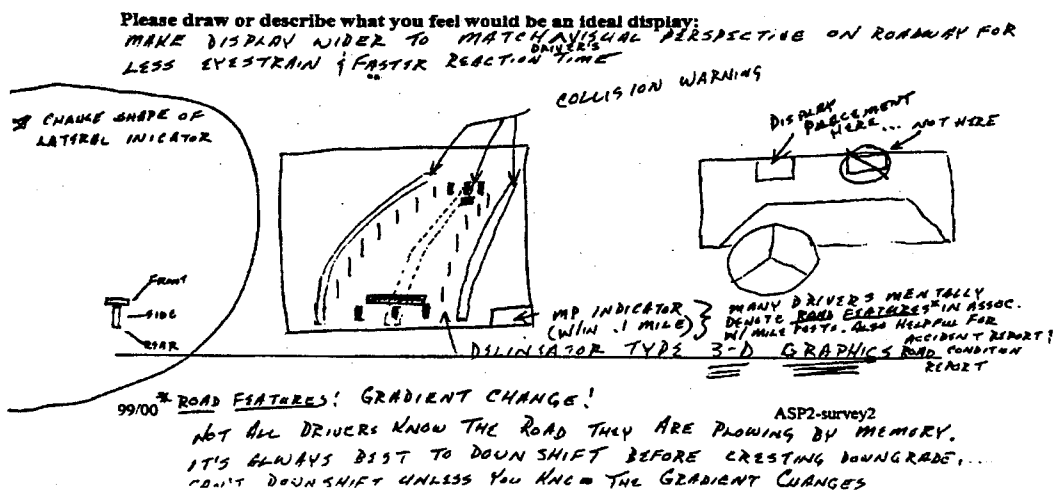 Please draw or describe what you feel would be an ideal display:
MAKE DISPLAY WIDER TO MATCH DRIVER'S VISUAL PERSPECTIVE ON ROADWAY FOR
LESS EYESTRAIN & FASTER REACTION TIME
COLLISION WARNING
* CHANGE SHAPE OF
LATERAL INICATOR
DISPLAY
PLACEMENT
HERE... NOT HERE
FRONT
SIDE
REAR
MP INDICATOR
(W/IN .1 MILE)
MANY DRIVERS MENTALLY
DENOTE ROAD FEATURES* IN ASSOC.
W/ MILE POSTS. ALSO HELPFUL FOR
ACCIDENT REPORT &
ROAD CONDITION
REPORT
DELINEATOR TYPE 3-D GRAPHICS
99/00
* ROAD FEATURES! GRADIENT CHANGE!
ASP2-survey2
NOT ALL DRIVERS KNOW THE ROAD THEY ARE PLOWING BY MEMORY.
IT'S ALWAYS BEST TO DOWN SHIFT BEFORE CRESTING DOWNGRADE....
CAN'T DOWNSHIFT UNLESS YOU KNOW THE GRADIENT CHANGES